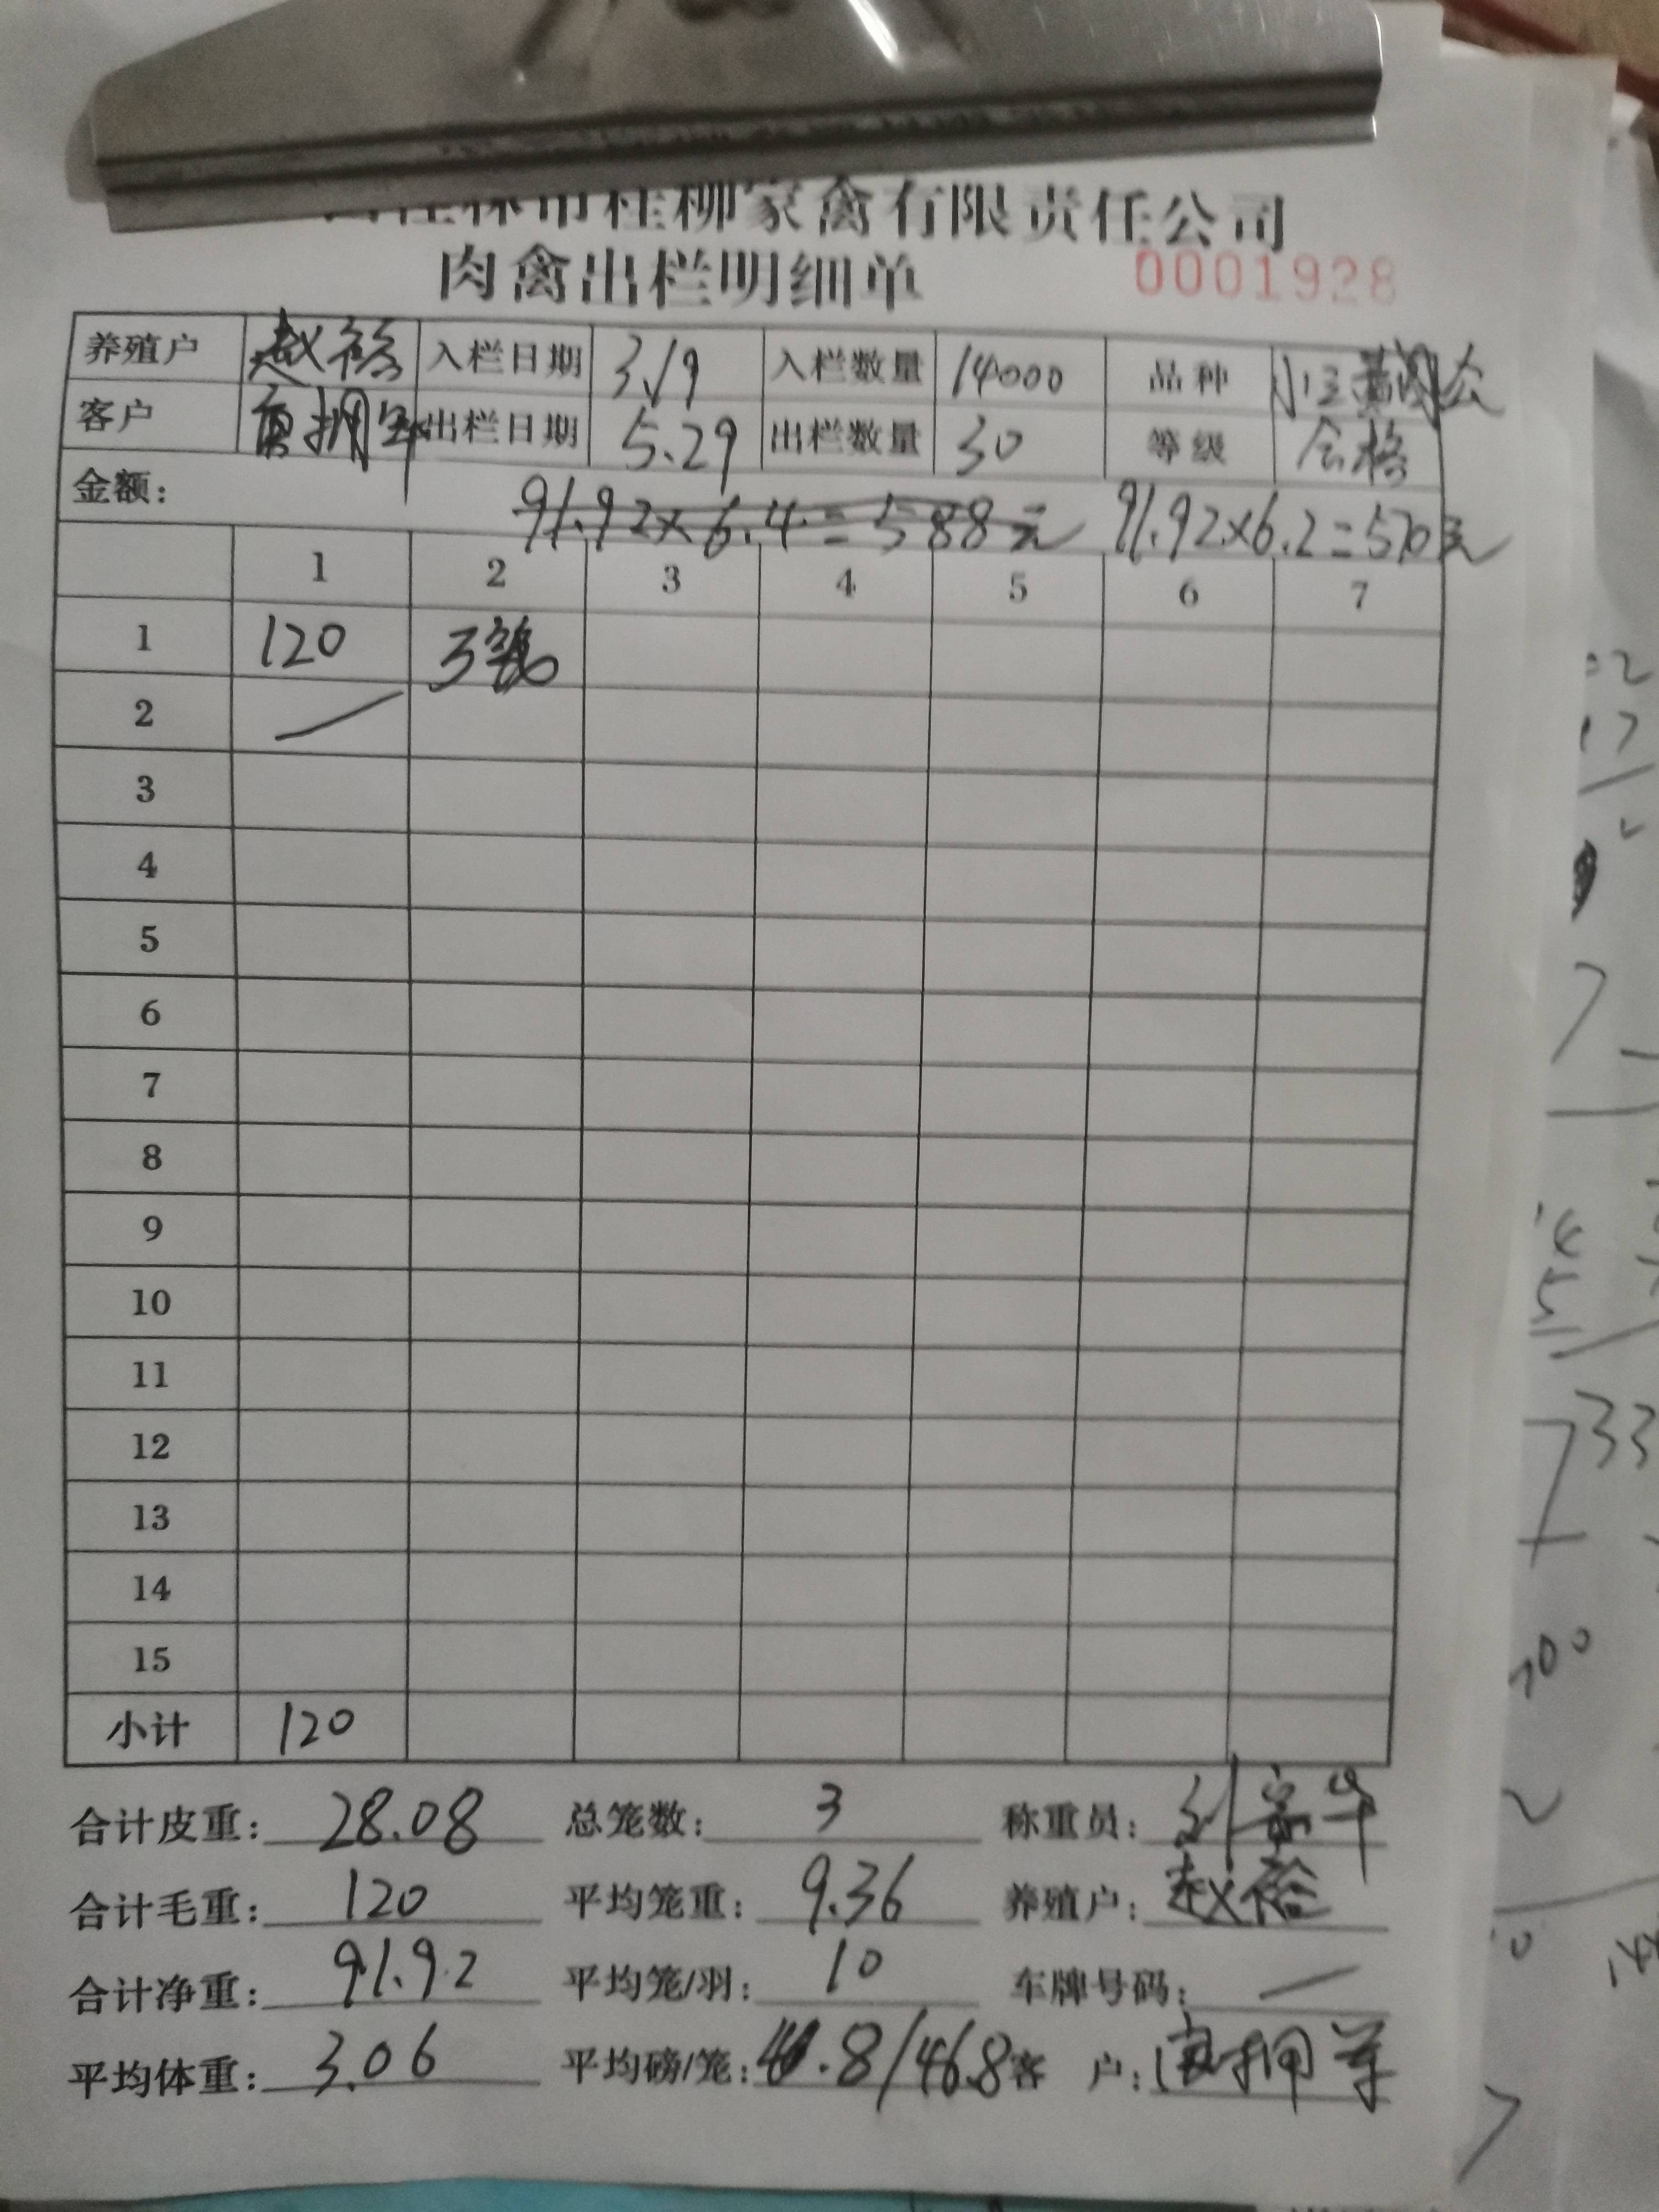 桂林市桂柳家禽有限责任公司
肉禽出栏明细单 0001928
养殖户 赵裕 入栏日期 3/19 入栏数量 14000 品种 公
客户 出栏日期 5.29 出栏数量 30 等级 合格
金额: 91.92×6.4=588元 91.92×6.2=570元
1 2 3 4 5 6 7
1 120 3笼
2 —
3
4
5
6
7
8
9
10
11
12
13
14
15
小计 120
合计皮重: 28.08 总笼数: 3 称重员:
合计毛重: 120 平均笼重: 9.36 养殖户: 赵裕
合计净重: 91.92 平均笼/羽: 10 车牌号码: —
平均体重: 3.06 平均磅/笼: .8/46.8 客 户:
02
17
33
700